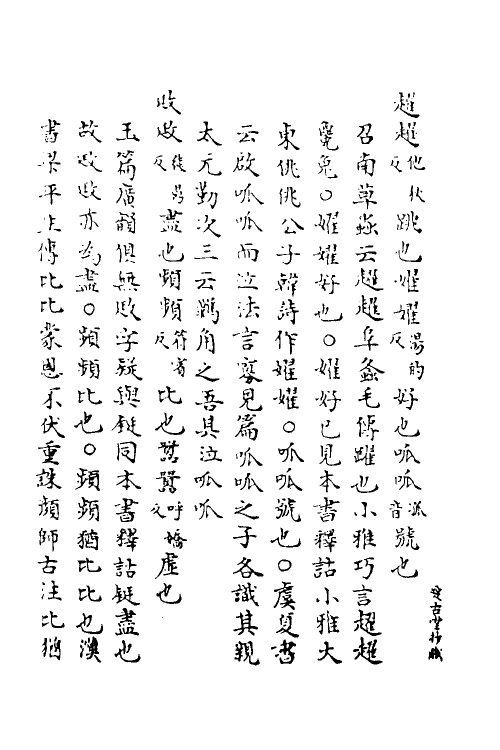 趯趯他狄反跳也嬥嬥湯的反好也呱呱音泒號也
召南草蟲云趯趯阜螽毛傳躍也小雅巧言趯趯
毚兔○嬥嬥好也○嬥好已見本書釋詁小雅大
東佻佻公子韓詩作嬥嬥○呱呱號也○虞夏書
云啟呱呱而泣法言寡見篇呱呱之子各識其親
太元勤次三云羈角之吾其泣呱呱
徒鼎反盡也頻頻符賓反比也嚻嚻呼嬌反虛也
玉篇廣韻俱無字疑與鋌同本書釋詁鋌盡也
故亦為盡○頻頻比也○頻頻猶比比也漢
書梁平王傳比比蒙恩不伏重誅顏師古注比猶
古堂抄藏